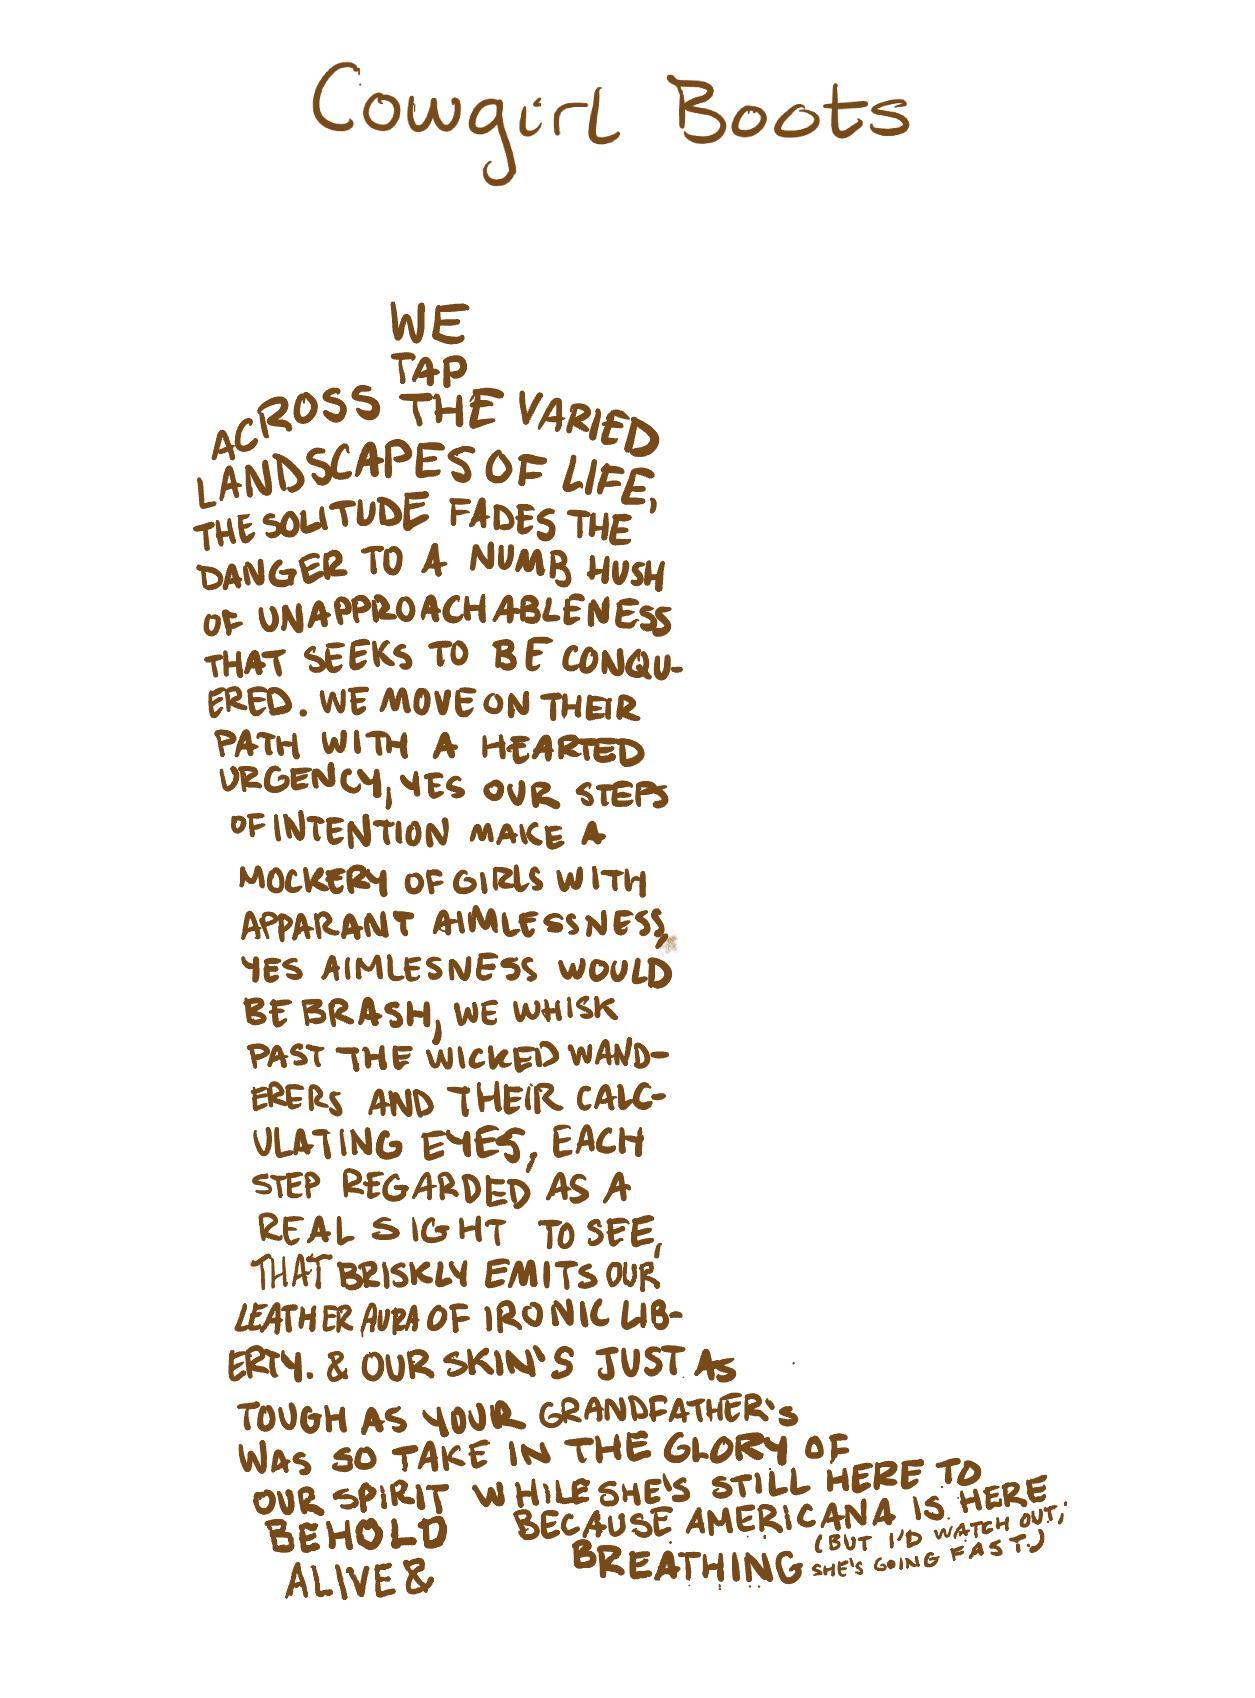 Cowgirl Boots
WE
TAP
ACROSS THE VARIED
LANDSCAPES OF LIFE,
THE SOLITUDE FADES THE
DANGER TO A NUMB HUSH
OF UNAPPROACHABLENESS
THAT SEEKS TO BE CONQU-
ERED. WE MOVE ON THEIR
PATH WITH A HEARTED
URGENCY, YES OUR STEPS
OF INTENTION MAKE A
MOCKERY OF GIRLS WITH
APPARANT AIMLESSNESS,
YES AIMLESNESS WOULD
BE BRASH, WE WHISK
PAST THE WICKED WAND-
ERERS AND THEIR CALC-
ULATING EYES, EACH
STEP REGARDED AS A
REAL SIGHT TO SEE,
THAT BRISKLY EMITS OUR
LEATHER AURA OF IRONIC LIB-
ERTY. & OUR SKIN'S JUST AS
TOUGH AS YOUR GRANDFATHER'S
WAS SO TAKE IN THE GLORY OF
OUR SPIRIT WHILE SHE'S STILL HERE TO
BEHOLD BECAUSE AMERICANA IS HERE
ALIVE & BREATHING (BUT I'D WATCH OUT,
SHE'S GOING FAST.)